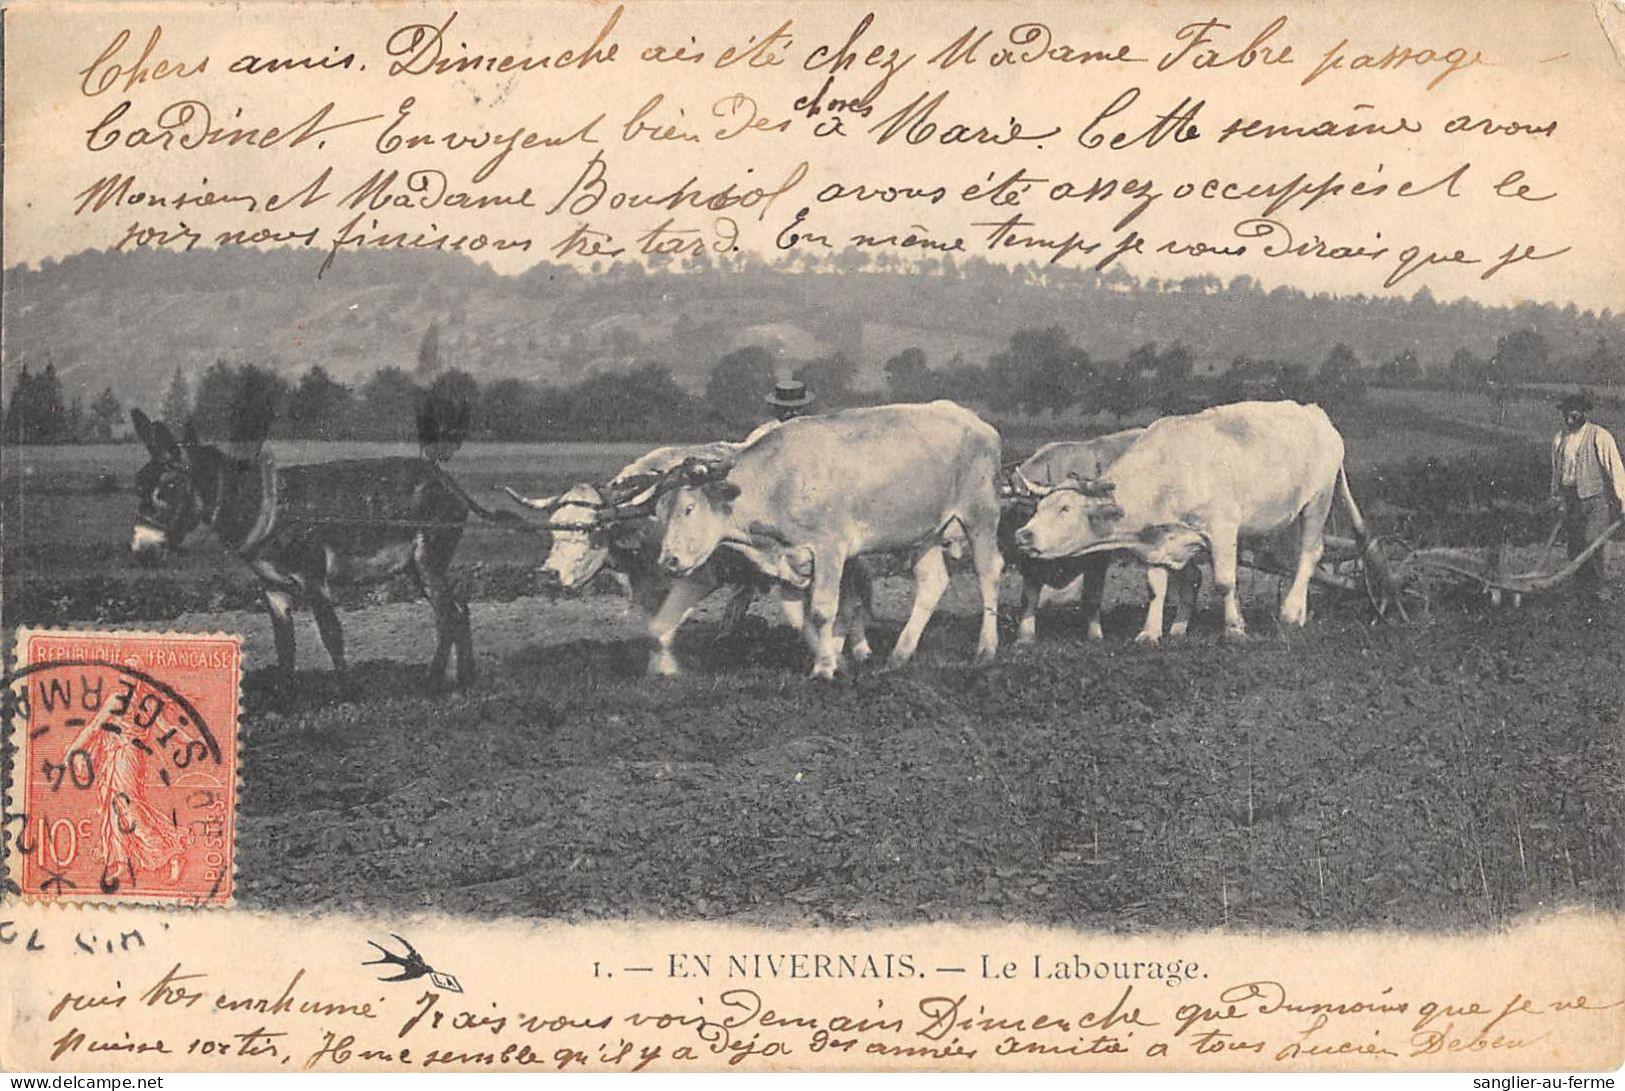 Chers amis. Dimenche ais été chez Madame Fabre passage
Cardinet. Envoyent bien des choses à Marie. Cette semaine avons
Monsieur et Madame avons été assez occuppés et le
soir nous finissons très tard. En même temps je vous dirais que je
REPUBLIQUE FRANÇAISE
ST. GERMA
04
10c
POSTES
LA
1. — EN NIVERNAIS. — Le Labourage.
suis très enrhumé J'rais vous voir demain Dimenche que dumoins que je ne
puisse sortir. Il me semble qu'il y a déja des années Amitié a tous Lucien
sanglier-au-ferme